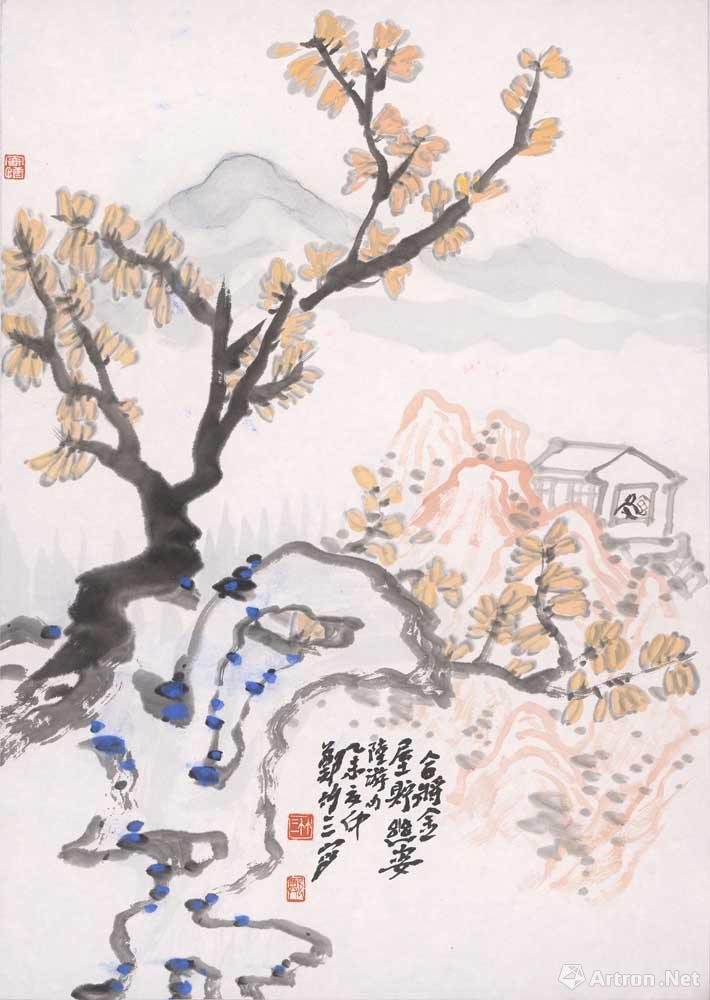 合將金
屋貯幽姿
陸游句
乙未仲
鄭竹三寫
竹三
鄭
Artron.Net